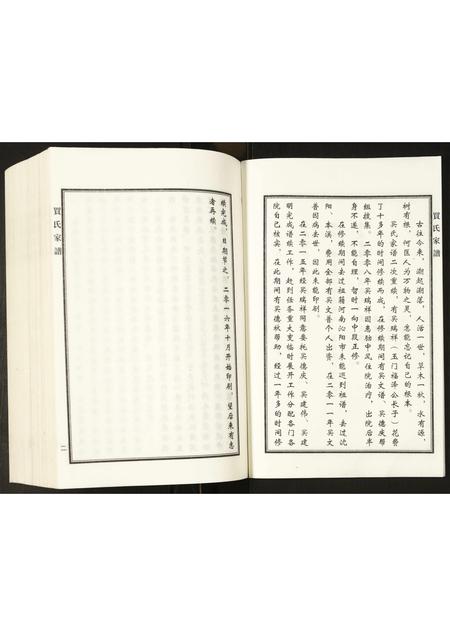 買氏家譜
古往今来，潮起潮落，人活一世，草木一秋，水有源，
树有根，何匡人为万物之灵，怎能忘记自己的根本。
买氏家谱二次重续，有买瑞祥（玉门福泽公长子）花费
了十多年的时间修续而成，在修续期间有买文谱、买德庆帮
组搜集。二零零八年买瑞祥因患脑中风住院治疗，出院后半
身不遂，不能自理，暂时一向中段正修。
在修续期间去过祖籍河南沁阳市未能迎到祖谱，去过沈
阳、本溪，费用全部有买文普个人出资，在二零一一年买文
普因病去世，因此未能印刷。
在二零一五年经买瑞祥同意委托买德庆、买建伟、买建
明完成谱续工作，赶到任务重大复临时展开工作分配各门各
院自己核实。在此期间有买德秋帮助，经过一年多的时间修
续完成，日期节之，二零一六年十月开始印刷，望后来有志
者再续。
買氏家譜
二